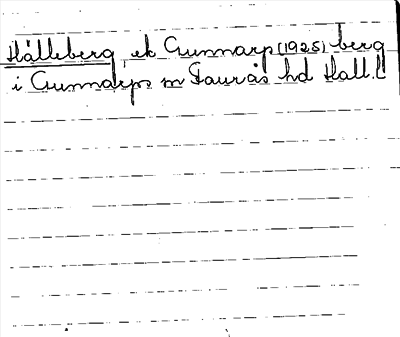 Hälleberg ek Gunnarp (1925) berg
i Gunnarps sn Faurås hd Hall.l